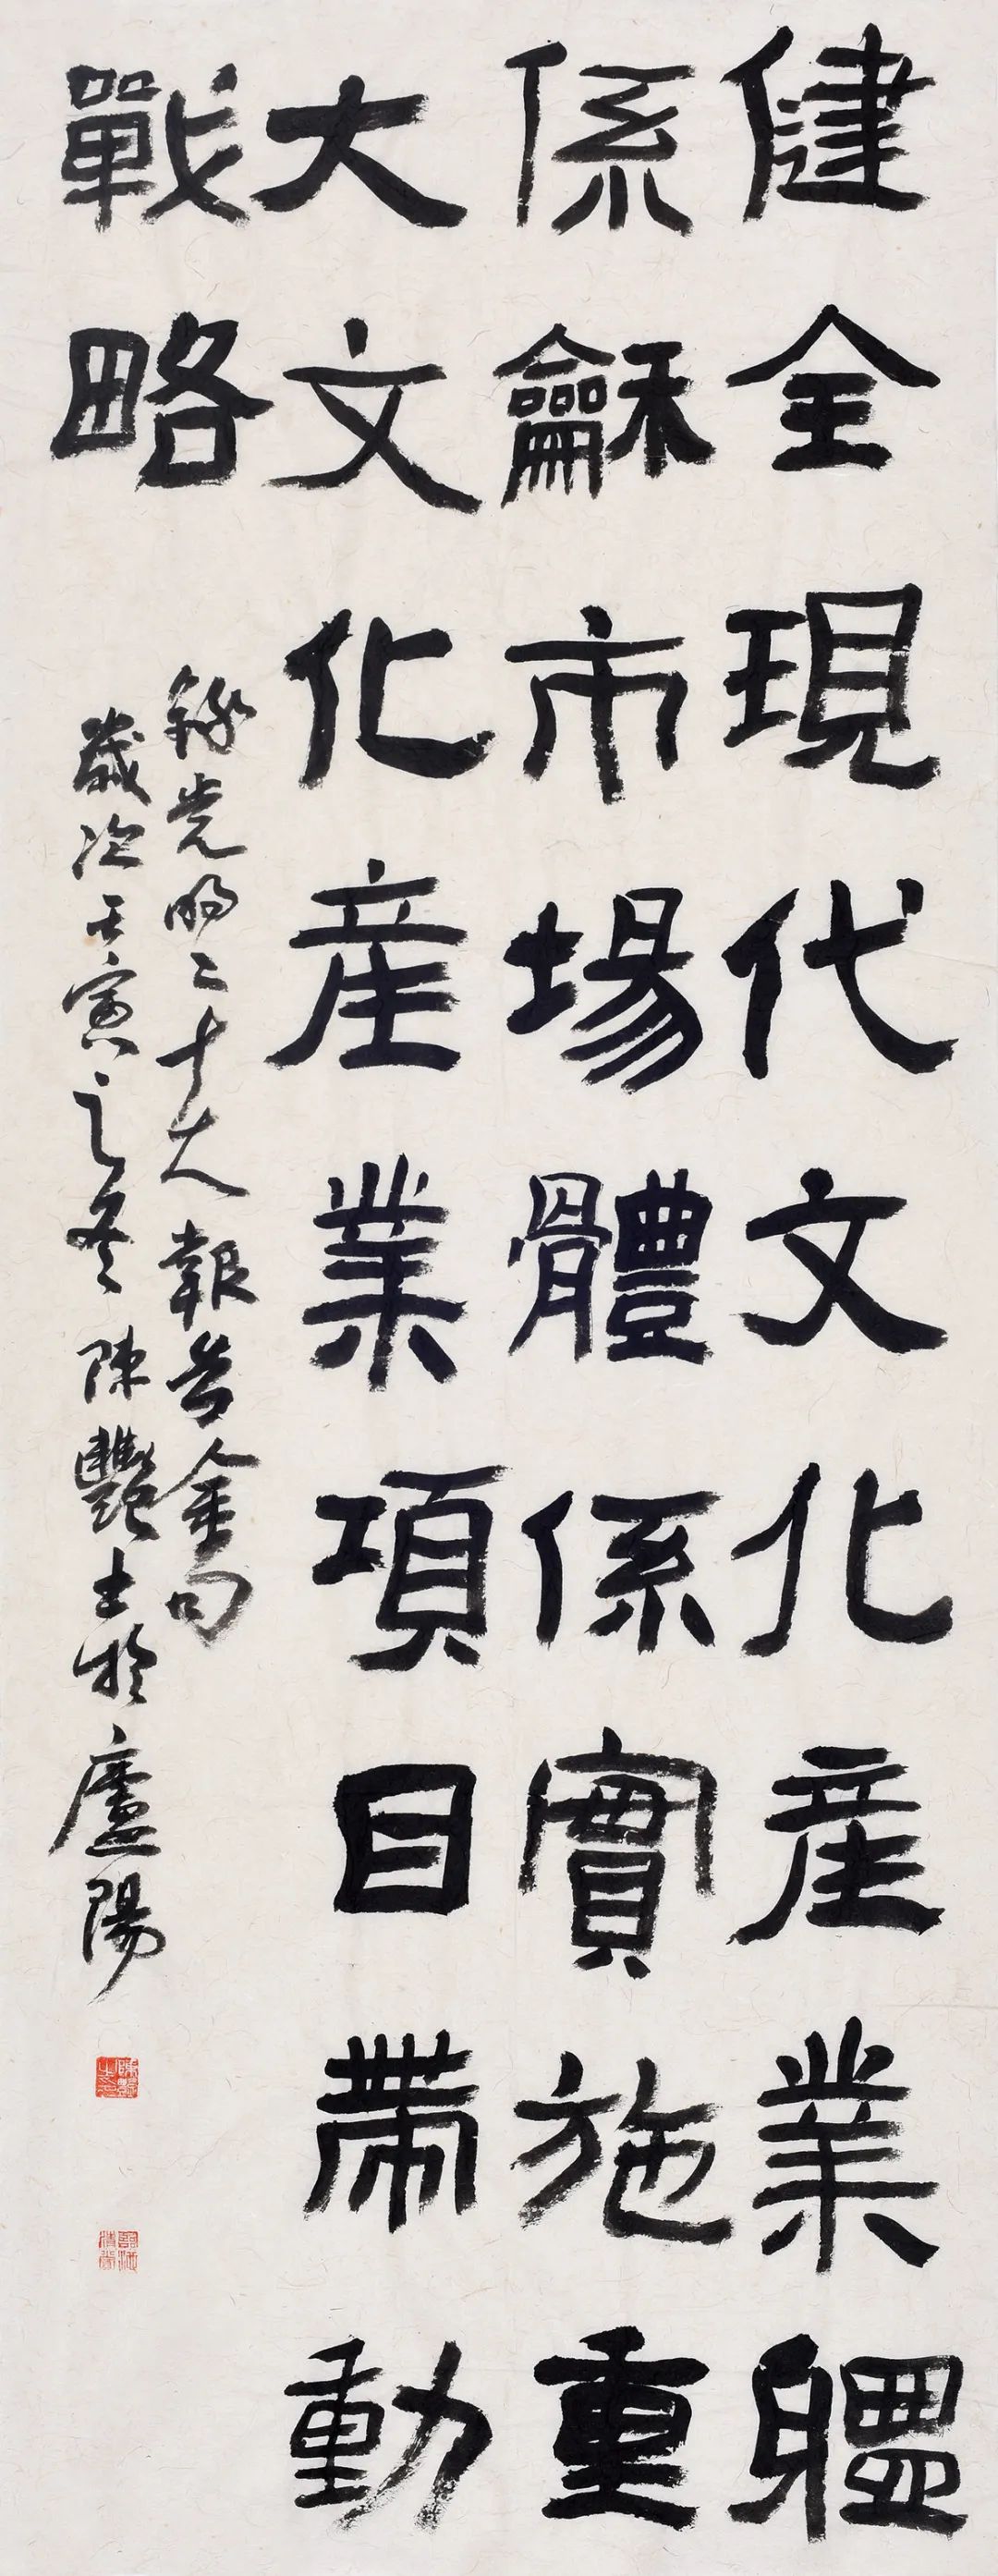 健全現代文化産業軆
係龢市場體係實施重
大文化産業項目帶動
戰略
錄党的二十大報告金句
歲次壬寅之冬陳艷士於廬陽